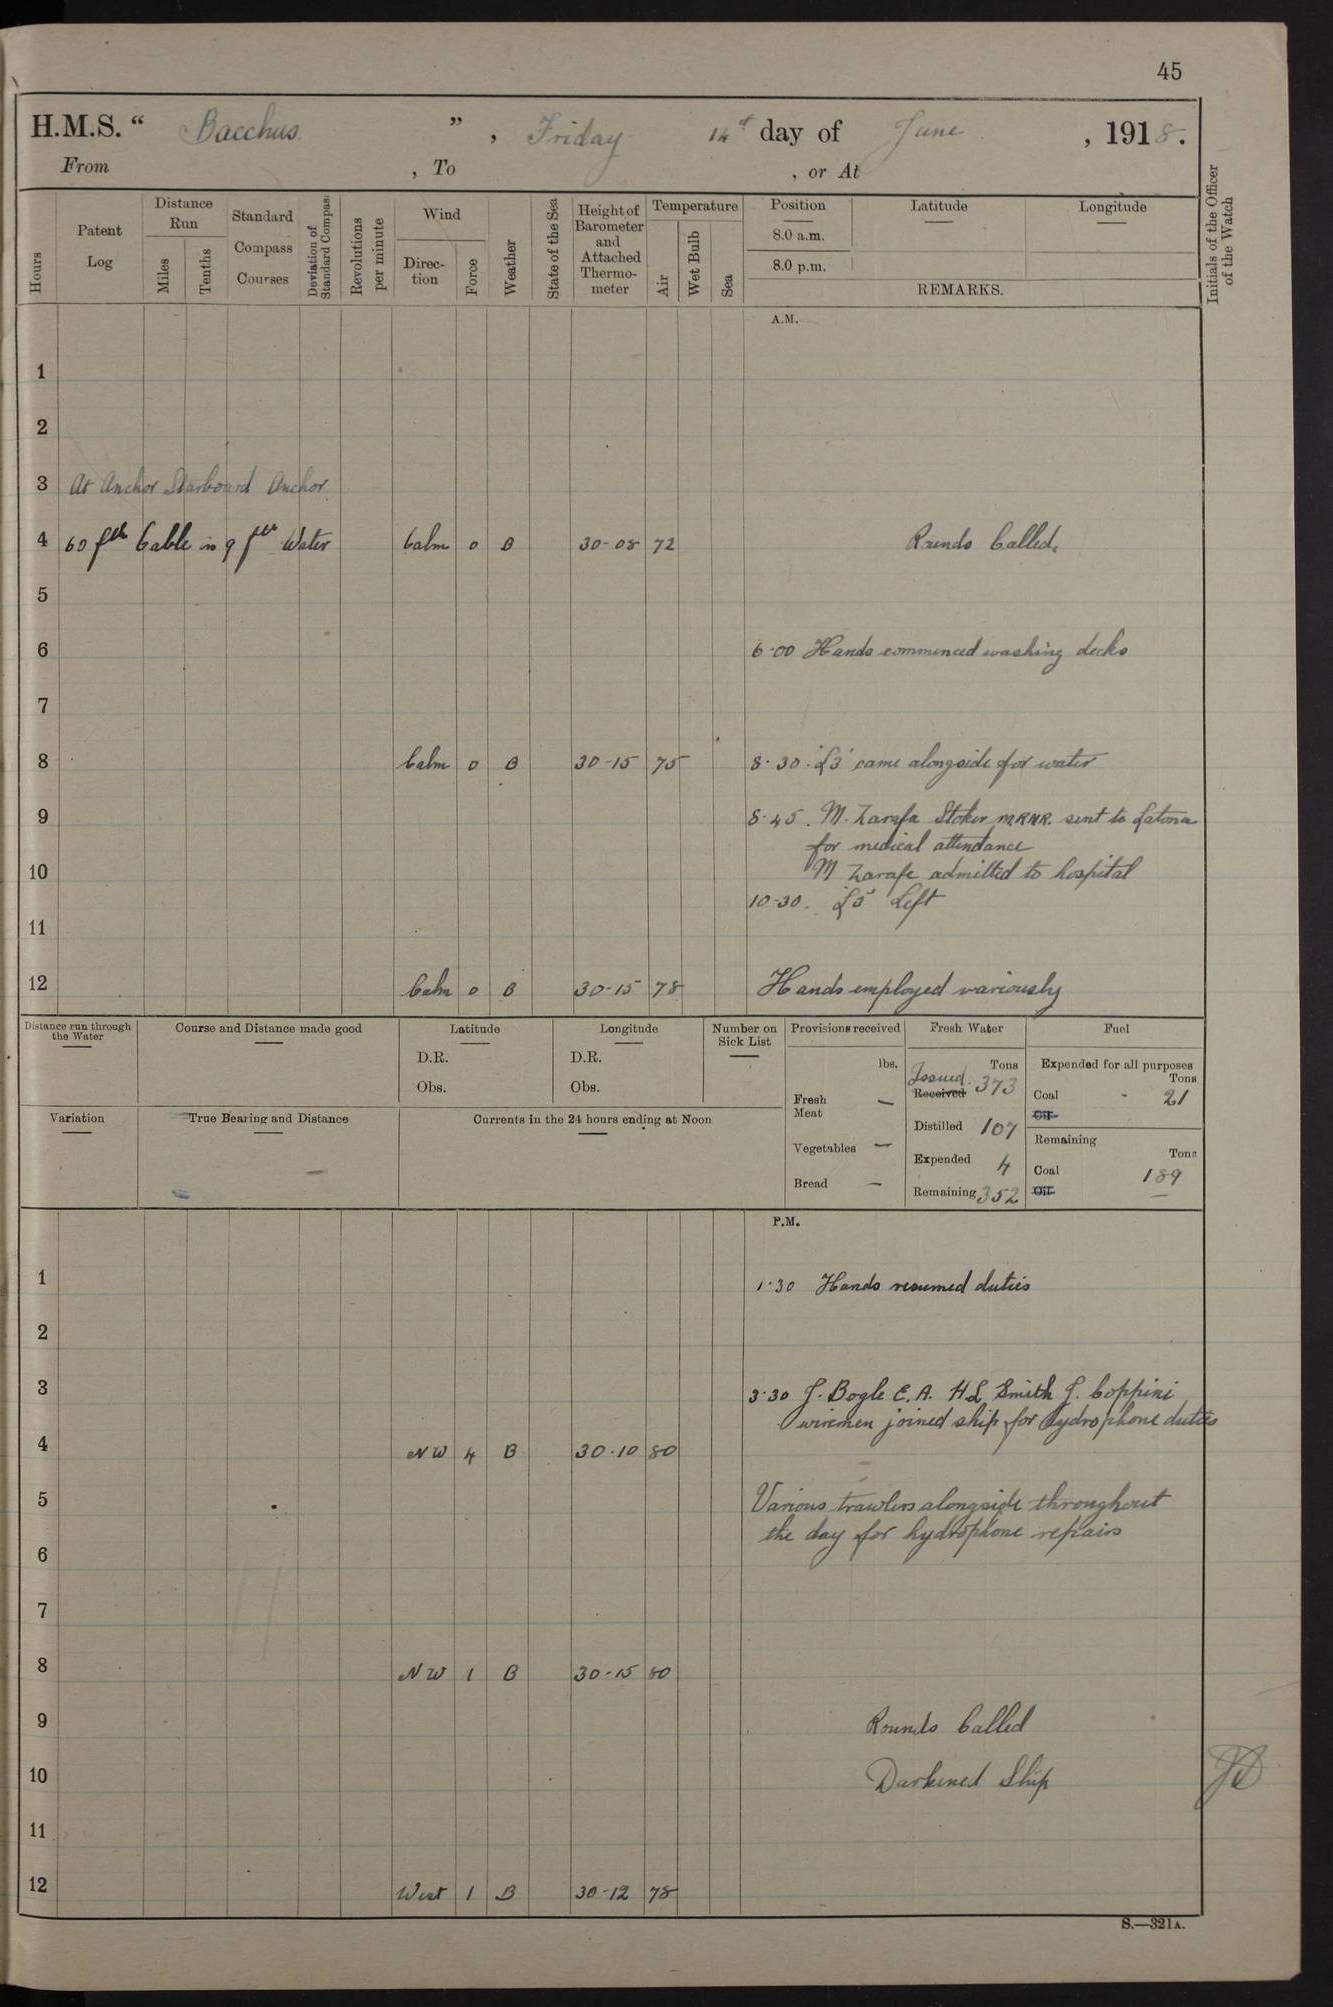 45
H.M.S. “ Bacchus ” , Friday 14th day of June , 1918.
From , To , or At
Hours
Patent Log
Distance Run
Miles
Tenths
Standard Compass Courses
Deviation of Standard Compass
Revolutions per minute
Wind
Direction
Force
Weather
State of the Sea
Height of Barometer and Attached Thermometer
Temperature
Air
Wet Bulb
Sea
Position Latitude Longitude
8.0 a.m.
8.0 p.m.
REMARKS.
Initials of the Officer of the Watch
A.M.
1
2
3 At Anchor Starboard Anchor
4 60 fth Cable in 9 fth Water Calm 0 B 30-08 72 Rounds Called.
5
6 6-00 Hands commenced washing decks
7
8 Calm 0 B 30-15 75 8-30 'L3' came alongside for water
9 8-45. M. Zarafa Stoker M.R.N.R. sent to Latona
for medical attendance
10 M Zarafe admitted to hospital
10-30. Left
11
12 Calm 0 B 30-15 78 Hands employed variously
Distance run through the Water
Course and Distance made good
Latitude
D.R.
Obs.
Longitude
D.R.
Obs.
Number on Sick List
Provisions received
lbs.
Fresh Meat —
Vegetables —
Bread —
Fresh Water
Tons
Issued Received 373
Distilled 107
Expended 4
Remaining 352
Fuel
Expended for all purposes
Tons
Coal - 21
Oil
Remaining
Tons
Coal 189
Oil —
Variation
True Bearing and Distance
Currents in the 24 hours ending at Noon
P.M.
1 1.30 Hands resumed duties
2
3 3.30 J. Bogle E.A. H L Smith J. Coppini
wiremen joined ship for hydrophone duties
4 NW 4 B 30.10 80
5 Various trawlers alongside throughout
the day for hydrophone repairs
6
7
8 NW 1 B 30-15 80
9 Rounds Called
10 Darkened Ship
11
12 West 1 B 30-12 78
S.—321A.